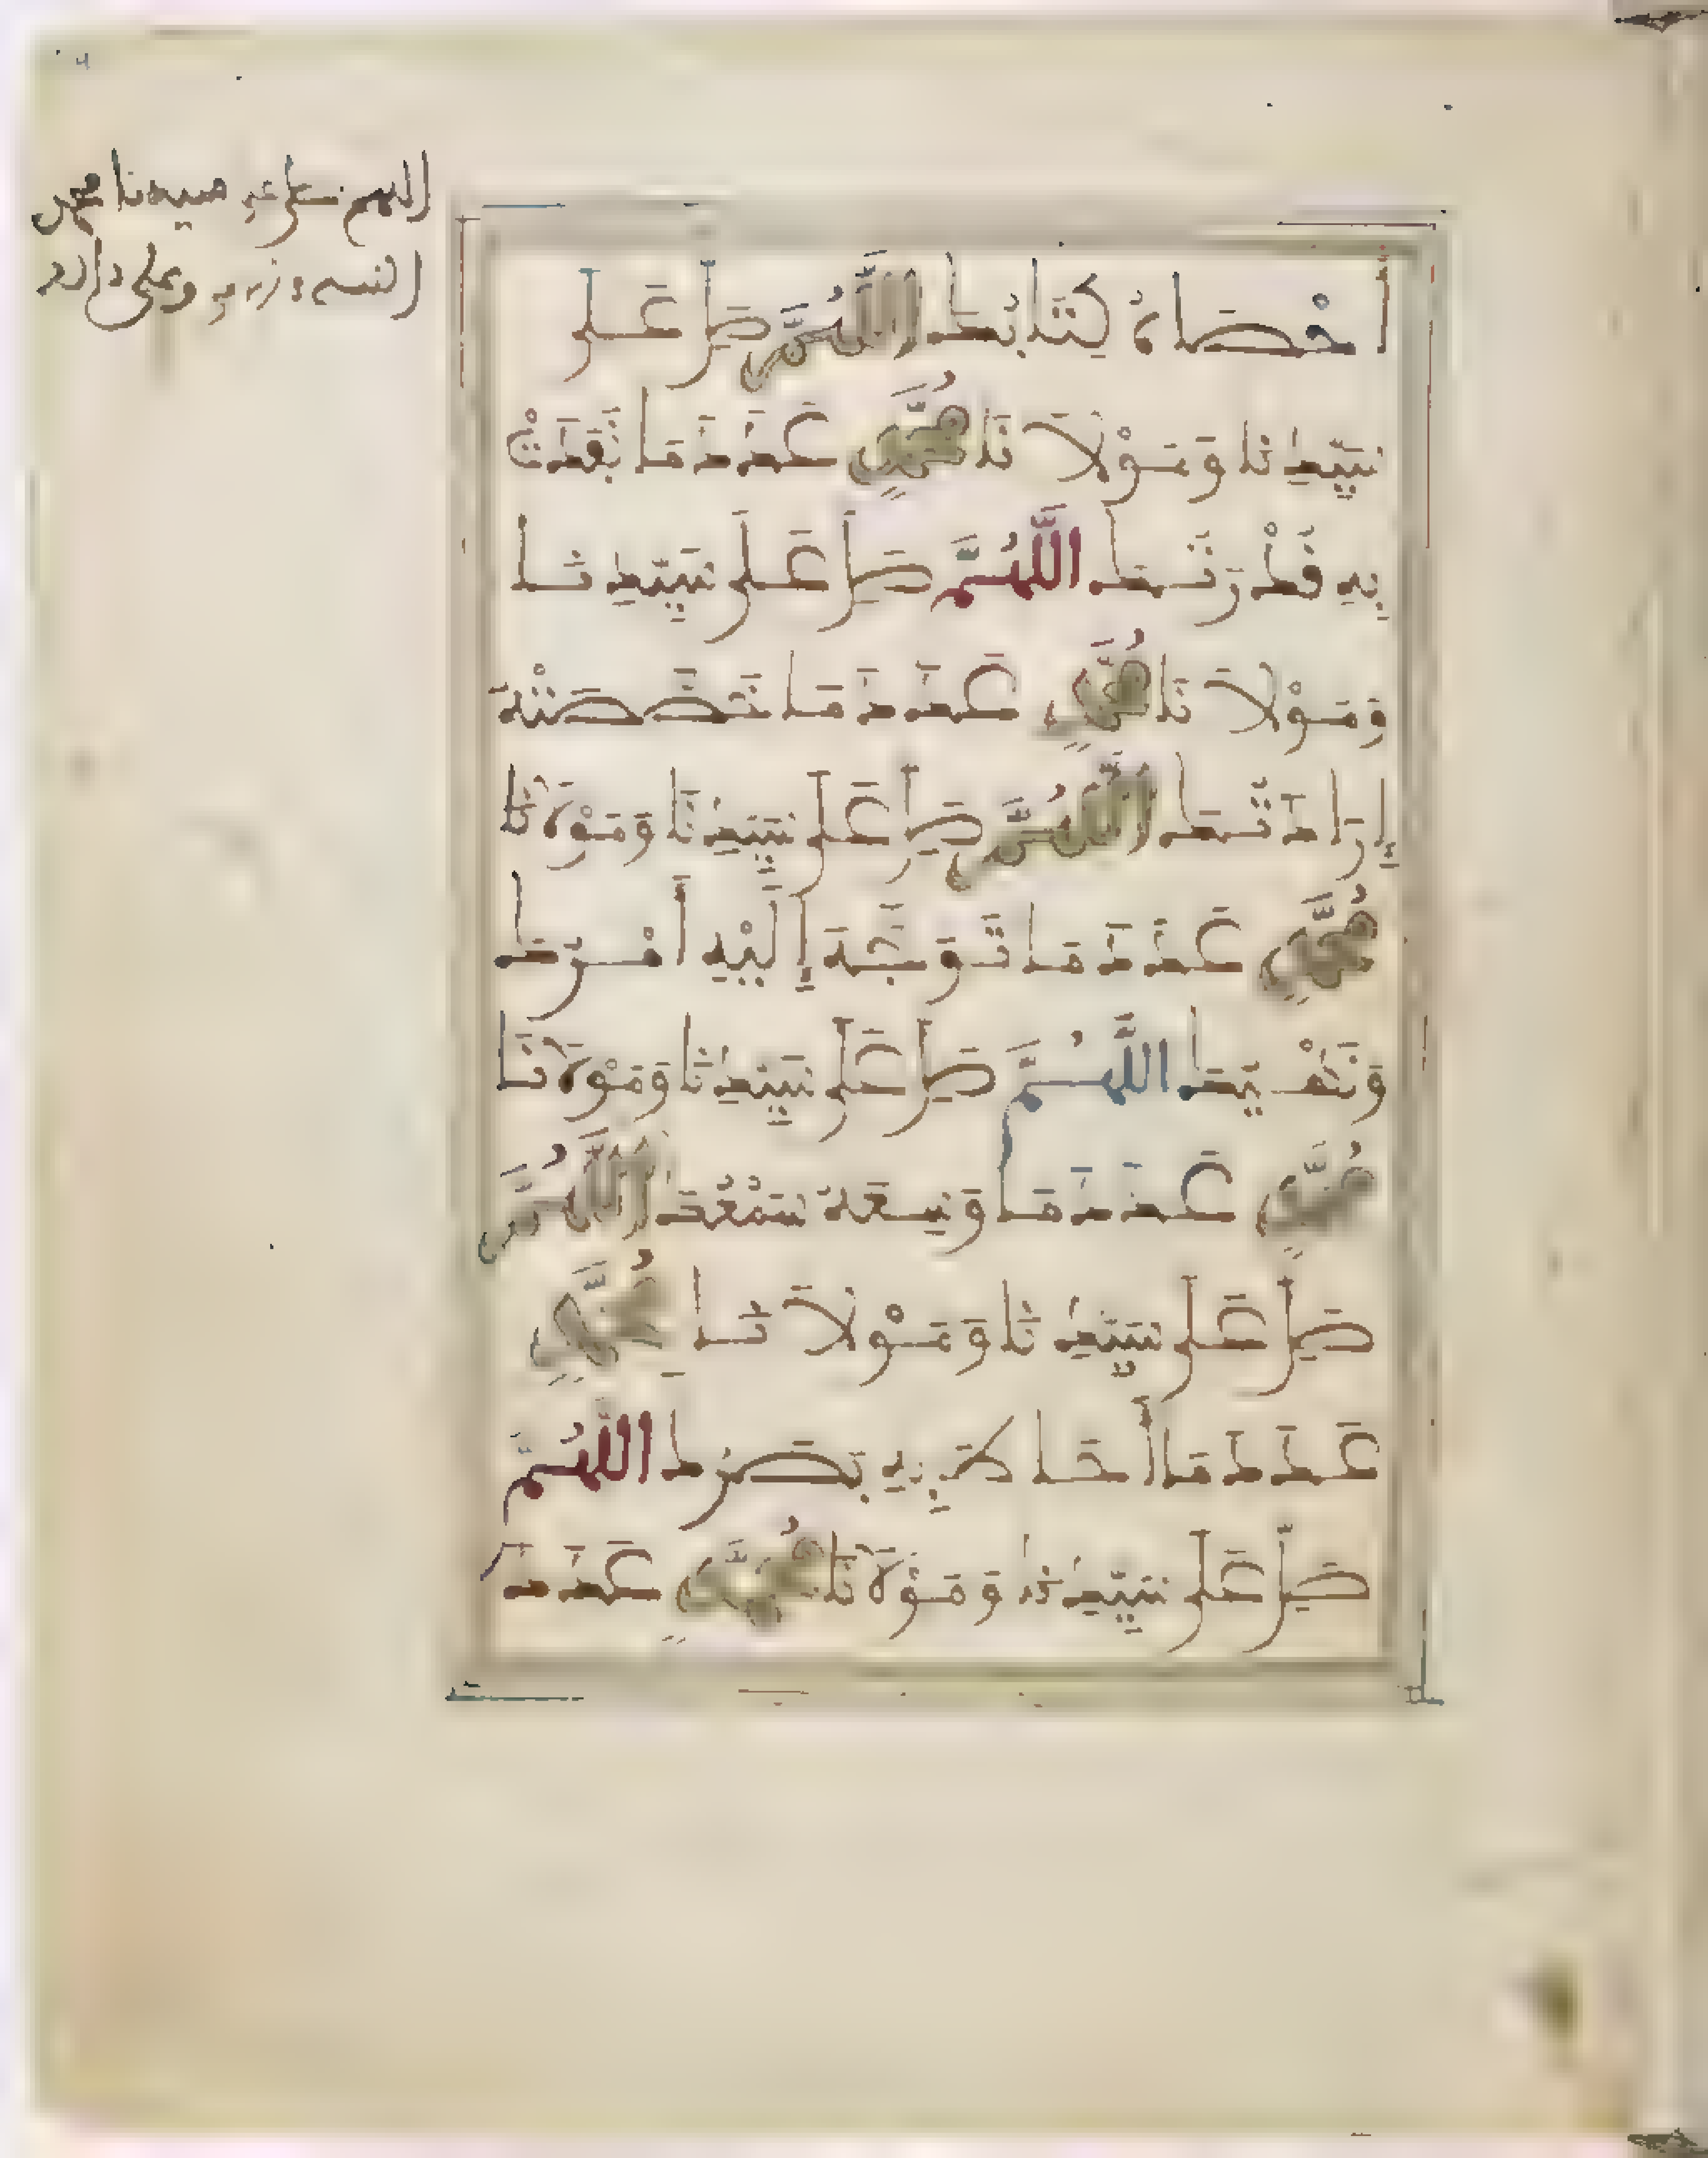 أَحْصَاهُ كِتَابُكَ اللَّهُمَّ صَلِّ عَلَى
سَيِّدِنَا وَمَوْلَانَا مُحَمَّدٍ عَدَدَ مَا نَفَذَتْ
بِهِ قُدْرَتُكَ اللَّهُمَّ صَلِّ عَلَى سَيِّدِنَا
وَمَوْلَانَا مُحَمَّدٍ عَدَدَ مَا خَصَّصَتْهُ
إِرَادَتُكَ اللَّهُمَّ صَلِّ عَلَى سَيِّدِنَا وَمَوْلَانَا
مُحَمَّدٍ عَدَدَ مَا تَوَجَّهَ إِلَيْهِ أَمْرُكَ
وَنَهْيُكَ اللَّهُمَّ صَلِّ عَلَى سَيِّدِنَا وَمَوْلَانَا
مُحَمَّدٍ عَدَدَ مَا وَسِعَهُ سَمْعُكَ اللَّهُمَّ
صَلِّ عَلَى سَيِّدِنَا وَمَوْلَانَا مُحَمَّدٍ
عَدَدَ مَا أَحَاطَ بِهِ بَصَرُكَ اللَّهُمَّ
صَلِّ عَلَى سَيِّدِنَا وَمَوْلَانَا مُحَمَّدٍ عَدَدَ
اللهم صل على سيدنا محمد
النبي وعلى ءاله